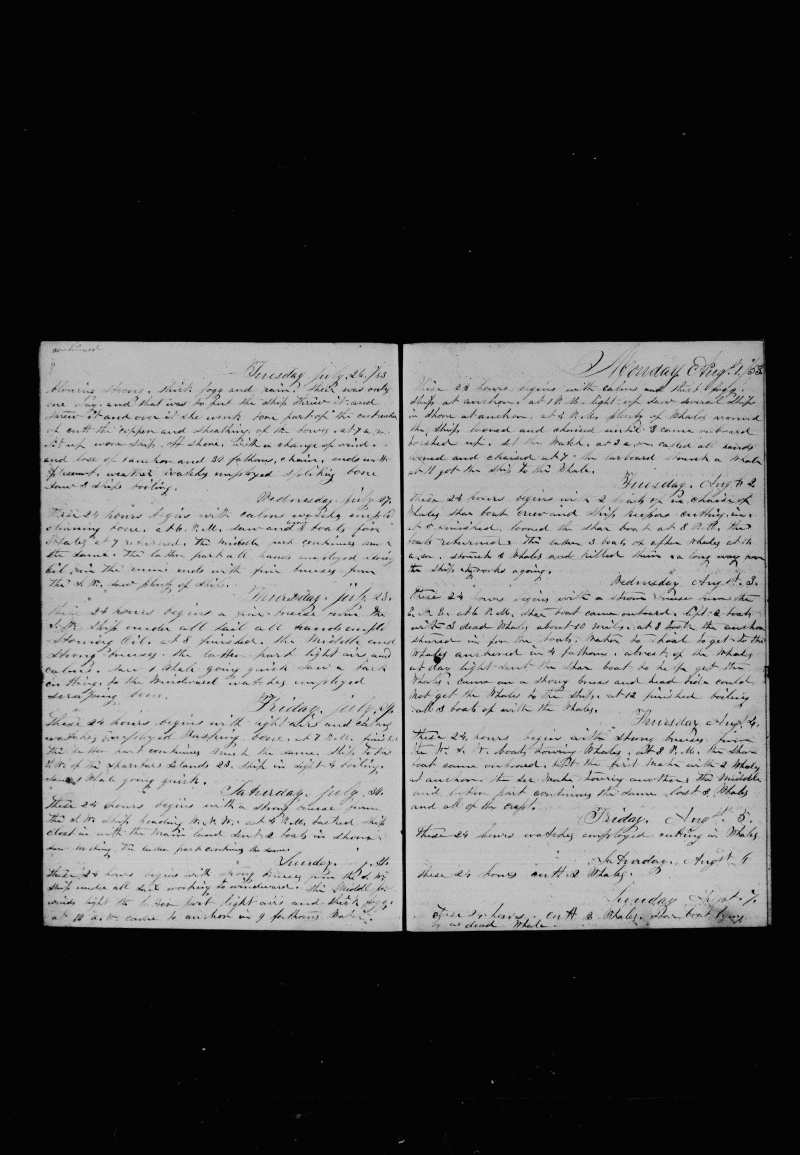 continued
Tuesday july. 26. /53
blowing strong. thick fogg and rain. their was only
one way. and that was to put the ship threw it. and
threw it and over it she went. tore part of the cutwater
of and the copper and sheathing of the bowes. at 7 a.m.
up wore ship. off shore. with a change of wind.
and lose of 1 anchor and 30 fathoms, chain, ends with
weather watches employed spliting bone
saw 8 ships boiling.
Wednesday. july 27.
these 24 hours begins with calms watches employed
cleaning bone. at 6. P.M. saw and boats for
Whales at 7 returned. the Middle part continues much
the same. the latter part all hands employed
oil. in the main ends with fine breeses from
the S.W. saw plenty of ships.
Thursday. july 28.
these 24 hours begins a fine breese from the
S.W. Ship under all sail all hands employed
Stowing Oil. at 8 finished. the Middle and
strong breeses. the latter part light airs and
calms. saw 1 Whale going quick saw a bark
cutting. to the Windward watches employed
scraping bone.
Friday. july. 29.
these 24 hours begins with light airs and calms
watches employed Washing bone. at 7 P.M. finished
the latter part continues much the same. Ship
of the Islands 28. ship in sight 4 boiling.
saw 1 Whale going quick.
Saturday. july 30.
these 24 hours begins with a strong breese from
the S.W. ship heading W.N.W. at 4 P.M. tacked ship
close in with the main land sent 2 boats in shore
saw nothing. the latter part continues the same
Sunday. j. 31.
these 24 hours begins with strong breeses from the S.W.
ship under all sail working to windward. the Middle
winds light the latter part light airs and thick foggs
at 10 a.m. came to anchor in 9 fathoms Water.
Monday Augt. 1. /53
these 24 hours begins with calms and thick fogg.
ship at anchor. at 1 P.M. light up saw several Ships
in shore at anchor. at 4 P.M. plenty of Whales around
the ship, lowed and chaised until 8 came onboard
set the Watch. at 3 a.m. called all hands
lowed and chaised at 7. the larboard struck a Whale
at 11 got him ship to the Whale.
Tuesday. Augt. 2
these 24 hours begins with 2 boats of in chaise of
Whales star boat crew and ship keepers cutting in.
at finished. lowed the star boat at 8 P.M. the
boats returned. the latter 3 boats of after Whales at 10
a.m. struck 2 Whales and killed them a long way from
the ship works agoing.
Wednesday Augst. 3.
these 24 hours begins with a strong breese from the
E.N.E. at 6 P.M. star boat came onboard. left 2 boats
with 3 dead Whales about 10 miles. at 8 took the anchor
in for the boats. Water to shoal to get to the
Whales anchored in 4 fathoms. abrest of the Whales
at day light sent the star boat to help get the
Whales. came on a strong breese and head tide could
not get the Whales to the ship. at 12 finished boiling
all 3 boats of with the Whales.
Thursday Augt. 4.
these 24 hours begins with strong breeses from
the W.S.W. boats towing Whales. at 8 P.M. the star
boat came onboard. left the first Mate with 2 Whales
at anchor. the sec Mate towing another. the Middle
and latter part continues the same lost 2 Whales
and all of the craft.
Friday. Augt. 5.
these 24 hours watches employed cutting in Whales
Saturday. Augst 6
these 24 hours cutt 2 Whales.
Sunday Augst. 7.
these 24 hours. cutt 2 Whales. star boat lying
by a dead Whale.